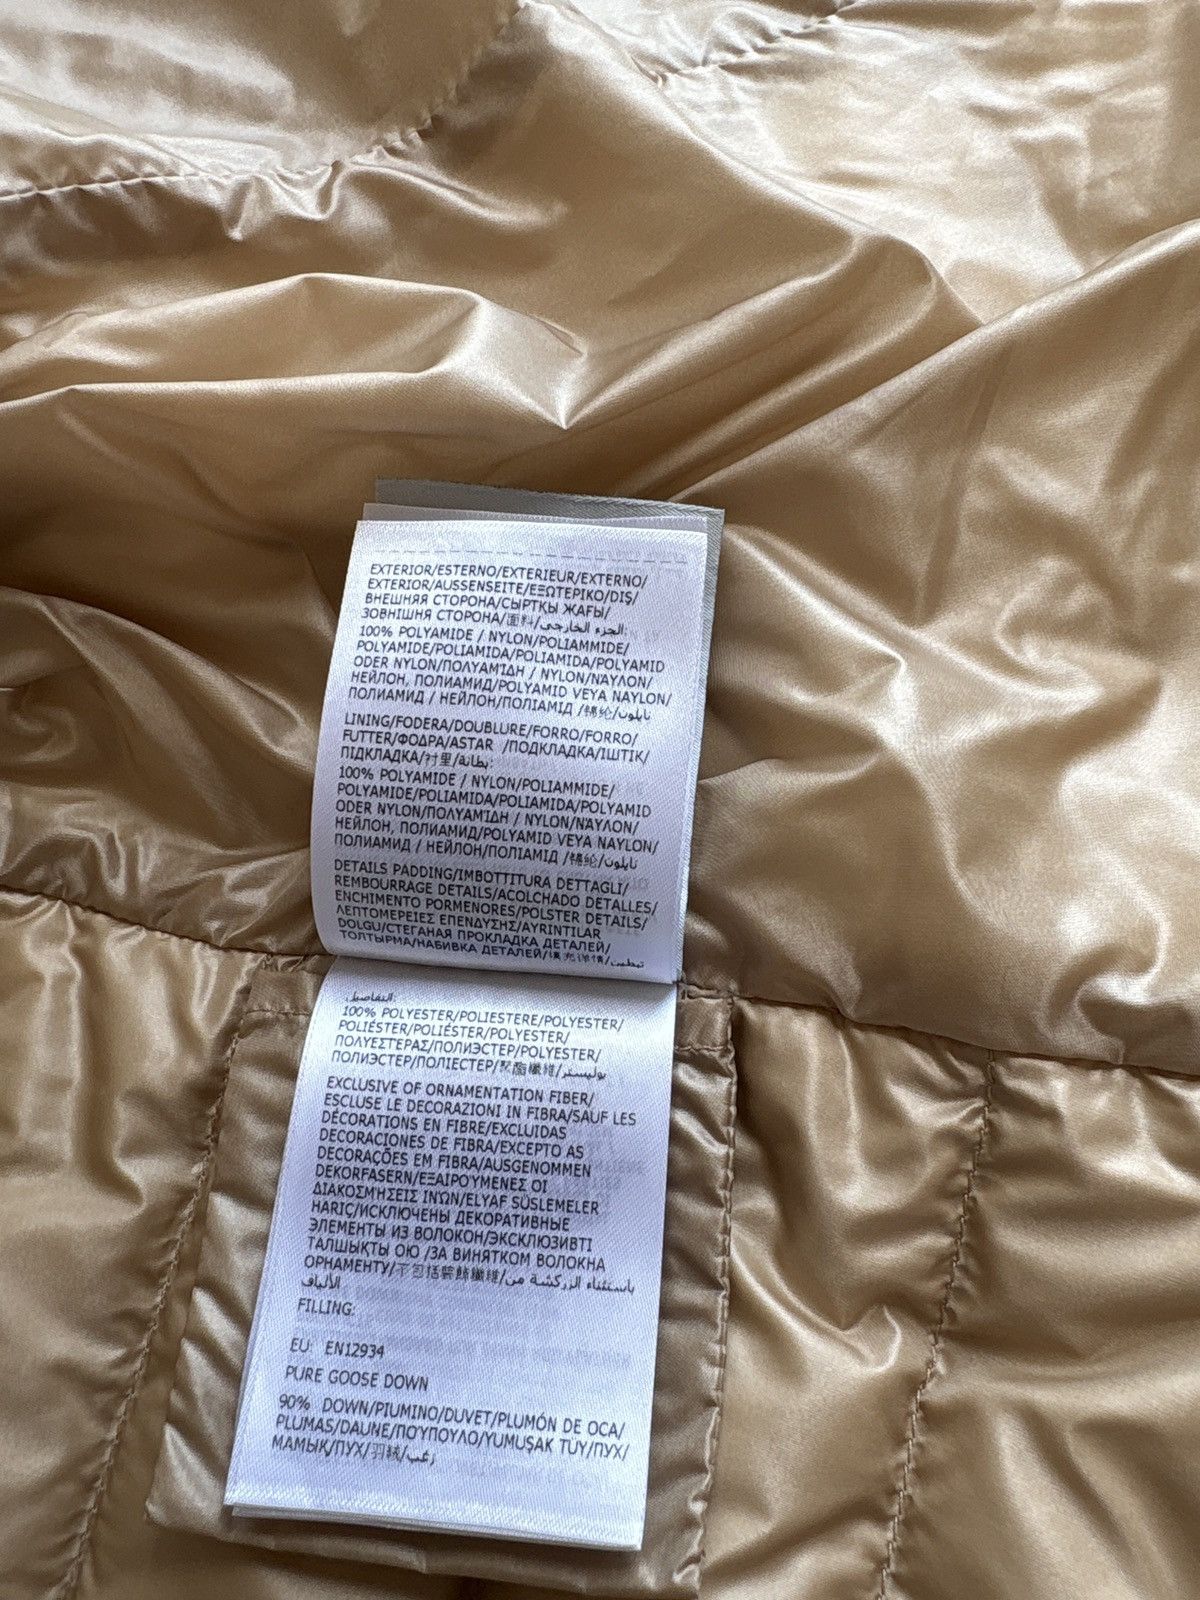 EXTERIOR/ESTERNO/EXTERIEUR/EXTERNO/
EXTERIOR/AUSSENSEITE/ΕΞΩΤΕΡΙΚΟ/DIŞ/
ВНЕШНЯЯ СТОРОНА/СЫРТҚЫ ЖАҒЫ/
ЗОВНІШНЯ СТОРОНА/面料/الجزء الخارجي:
100% POLYAMIDE / NYLON/POLIAMMIDE/
POLYAMIDE/POLIAMIDA/POLIAMIDA/POLYAMID
ODER NYLON/ΠΟΛΥΑΜΊΔΗ / NYLON/ΝΆΥΛΟΝ/
НЕЙЛОН, ПОЛИАМИД/POLYAMID VEYA NAYLON/
ПОЛИАМИД / НЕЙЛОН/ПОЛІАМІД /锦纶/نايلون
LINING/FODERA/DOUBLURE/FORRO/FORRO/
FUTTER/ΦΟΔΡΑ/ASTAR /ПОДКЛАДКА/ІШТІК/
ПІДКЛАДКА/衬里/بطانة:
100% POLYAMIDE / NYLON/POLIAMMIDE/
POLYAMIDE/POLIAMIDA/POLIAMIDA/POLYAMID
ODER NYLON/ΠΟΛΥΑΜΊΔΗ / NYLON/ΝΆΥΛΟΝ/
НЕЙЛОН, ПОЛИАМИД/POLYAMID VEYA NAYLON/
ПОЛИАМИД / НЕЙЛОН/ПОЛІАМІД /锦纶/نايلون
DETAILS PADDING/IMBOTTITURA DETTAGLI/
REMBOURRAGE DETAILS/ACOLCHADO DETALLES/
ENCHIMENTO PORMENORES/POLSTER DETAILS/
ΛΕΠΤΟΜΕΡΕΙΕΣ ΕΠΕΝΔΥΣΗΣ/AYRINTILAR
DOLGU/СТЕГАНАЯ ПРОКЛАДКА ДЕТАЛЕЙ/
ТОЛТЫРМА/НАБИВКА ДЕТАЛЕЙ/填充详情/تبطين
التفاصيل:
100% POLYESTER/POLIESTERE/POLYESTER/
POLIÉSTER/POLIÉSTER/POLYESTER/
ΠΟΛΥΕΣΤΕΡΑΣ/ПОЛИЭСТЕР/POLYESTER/
ПОЛИЭСТЕР/ПОЛІЕСТЕР/聚酯纖維/بوليستر
EXCLUSIVE OF ORNAMENTATION FIBER/
ESCLUSE LE DECORAZIONI IN FIBRA/SAUF LES
DÉCORATIONS EN FIBRE/EXCLUIDAS
DECORACIONES DE FIBRA/EXCEPTO AS
DECORAÇÕES EM FIBRA/AUSGENOMMEN
DEKORFASERN/ΕΞΑΙΡΟΎΜΕΝΕΣ ΟΙ
ΔΙΑΚΟΣΜΉΣΕΙΣ ΙΝΏΝ/ELYAF SÜSLEMELER
HARIÇ/ИСКЛЮЧЕНЫ ДЕКОРАТИВНЫЕ
ЭЛЕМЕНТЫ ИЗ ВОЛОКОН/ЭКСКЛЮЗИВТІ
ТАЛШЫҚТЫ ОЮ /ЗА ВИНЯТКОМ ВОЛОКНА
ОРНАМЕНТУ/不包括裝飾纖維/باستثناء الزركشة من
الألياف
FILLING:
EU: EN12934
PURE GOOSE DOWN
90% DOWN/PIUMINO/DUVET/PLUMÓN DE OCA/
PLUMAS/DAUNE/ΠΟΎΠΟΥΛΟ/YUMUŞAK TÜY/ПУХ/
МАМЫҚ/ПУХ/羽絨/زغب